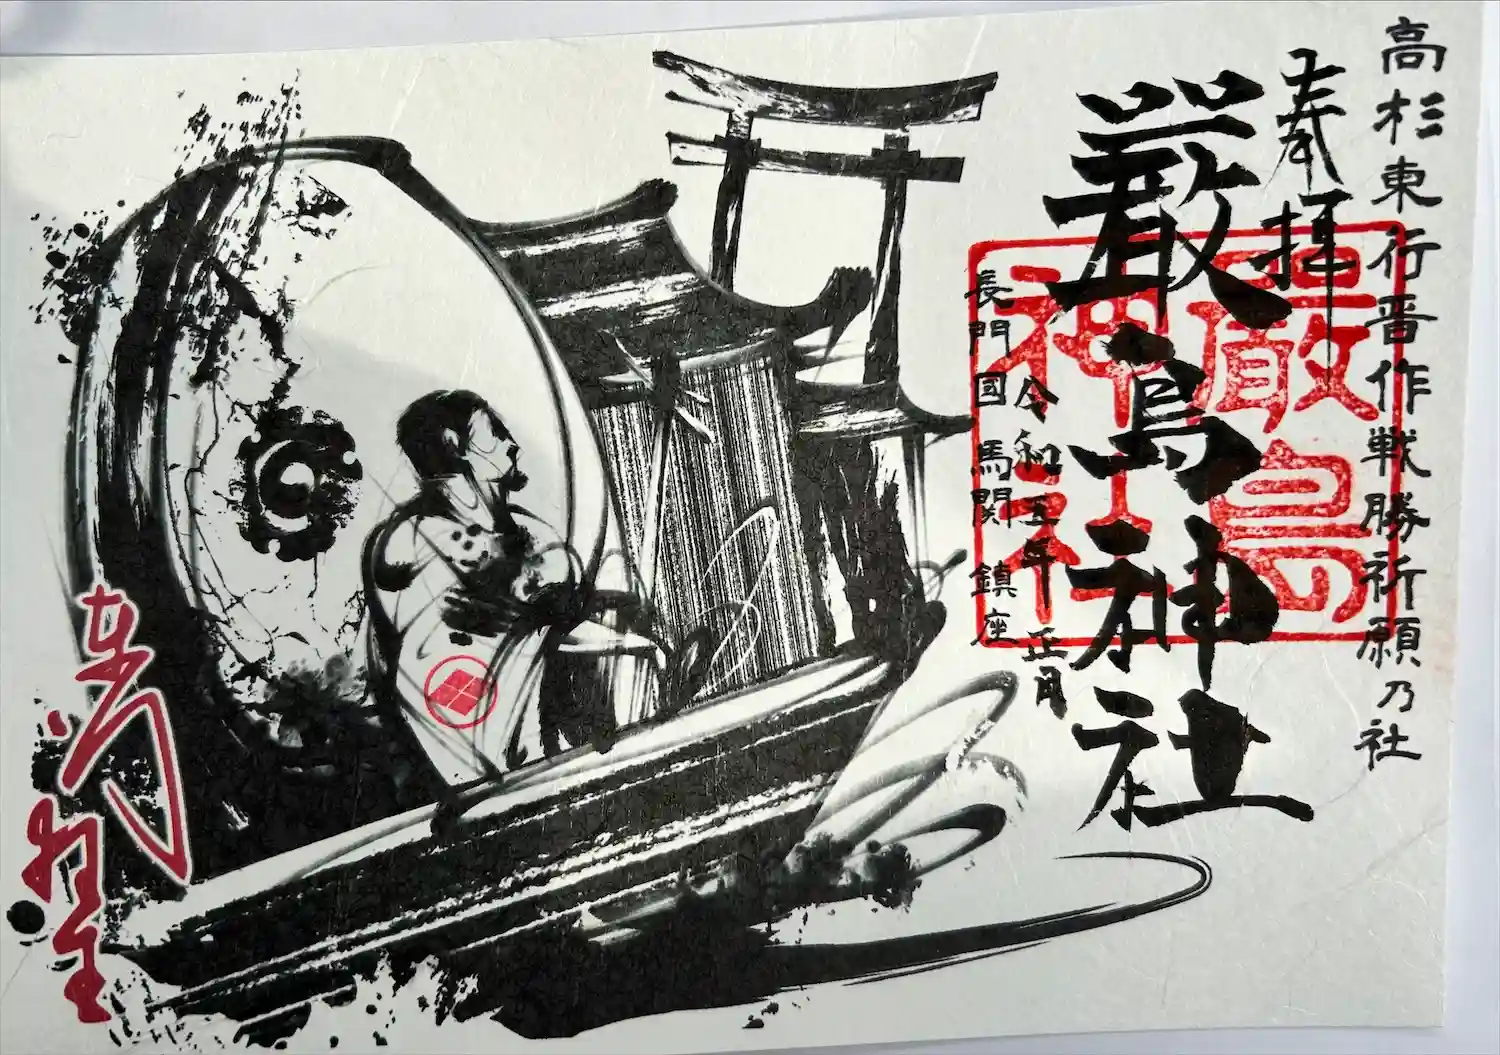 高杉東行晋作戦勝祈願乃社
奉拝
厳島神社
厳島
神社
令和五年 正月
長門國 馬関 鎮座